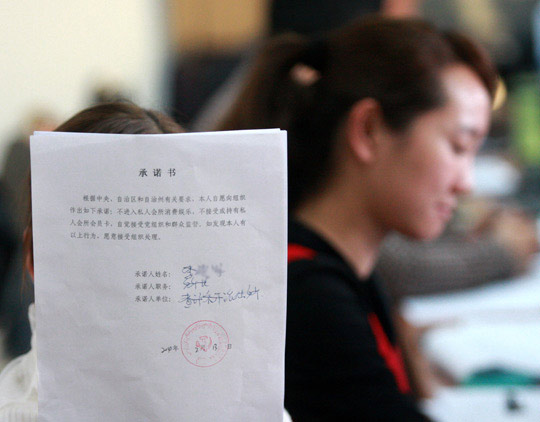 承诺书
根据中央、自治区和自治州有关要求，本人自愿向组织
作出如下承诺：不进入私人会所消费娱乐、不接受或持有私
人会所会员卡，自觉接受党组织和群众监督，如发现本人有
以上行为，愿意接受组织处理。
承诺人姓名：
承诺人职务：
承诺人单位：